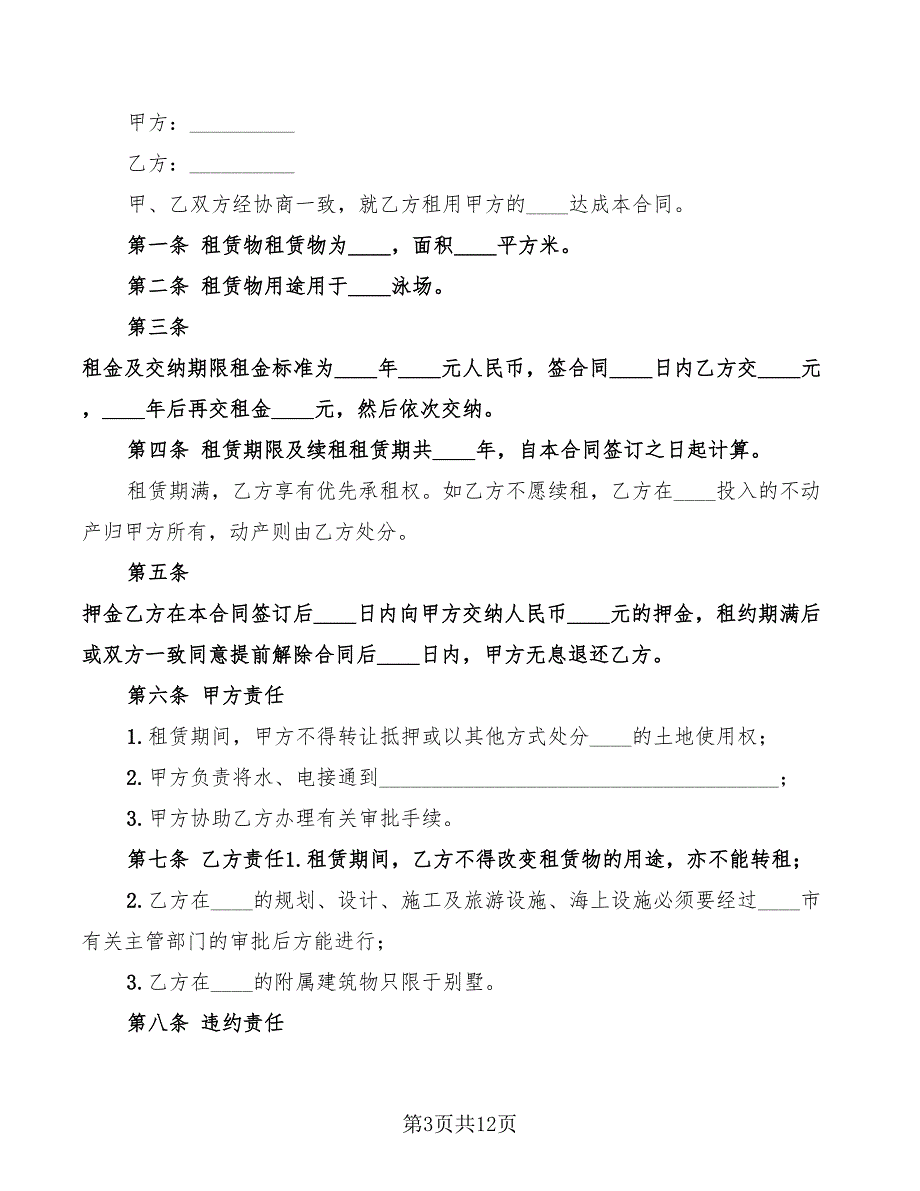 甲方：__________
乙方：__________
甲、乙双方经协商一致，就乙方租用甲方的____达成本合同。
第一条 租赁物租赁物为____，面积____平方米。
第二条 租赁物用途用于____泳场。
第三条
租金及交纳期限租金标准为____年____元人民币，签合同____日内乙方交____元
，____年后再交租金____元，然后依次交纳。
第四条 租赁期限及续租租赁期共____年，自本合同签订之日起计算。
租赁期满，乙方享有优先承租权。如乙方不愿续租，乙方在____投入的不动
产归甲方所有，动产则由乙方处分。
第五条
押金乙方在本合同签订后____日内向甲方交纳人民币____元的押金，租约期满后
或双方一致同意提前解除合同后____日内，甲方无息退还乙方。
第六条 甲方责任
1.租赁期间，甲方不得转让抵押或以其他方式处分____的土地使用权；
2.甲方负责将水、电接通到______________________________________；
3.甲方协助乙方办理有关审批手续。
第七条 乙方责任1.租赁期间，乙方不得改变租赁物的用途，亦不能转租；
2.乙方在____的规划、设计、施工及旅游设施、海上设施必须要经过____市
有关主管部门的审批后方能进行；
3.乙方在____的附属建筑物只限于别墅。
第八条 违约责任
第3页共12页